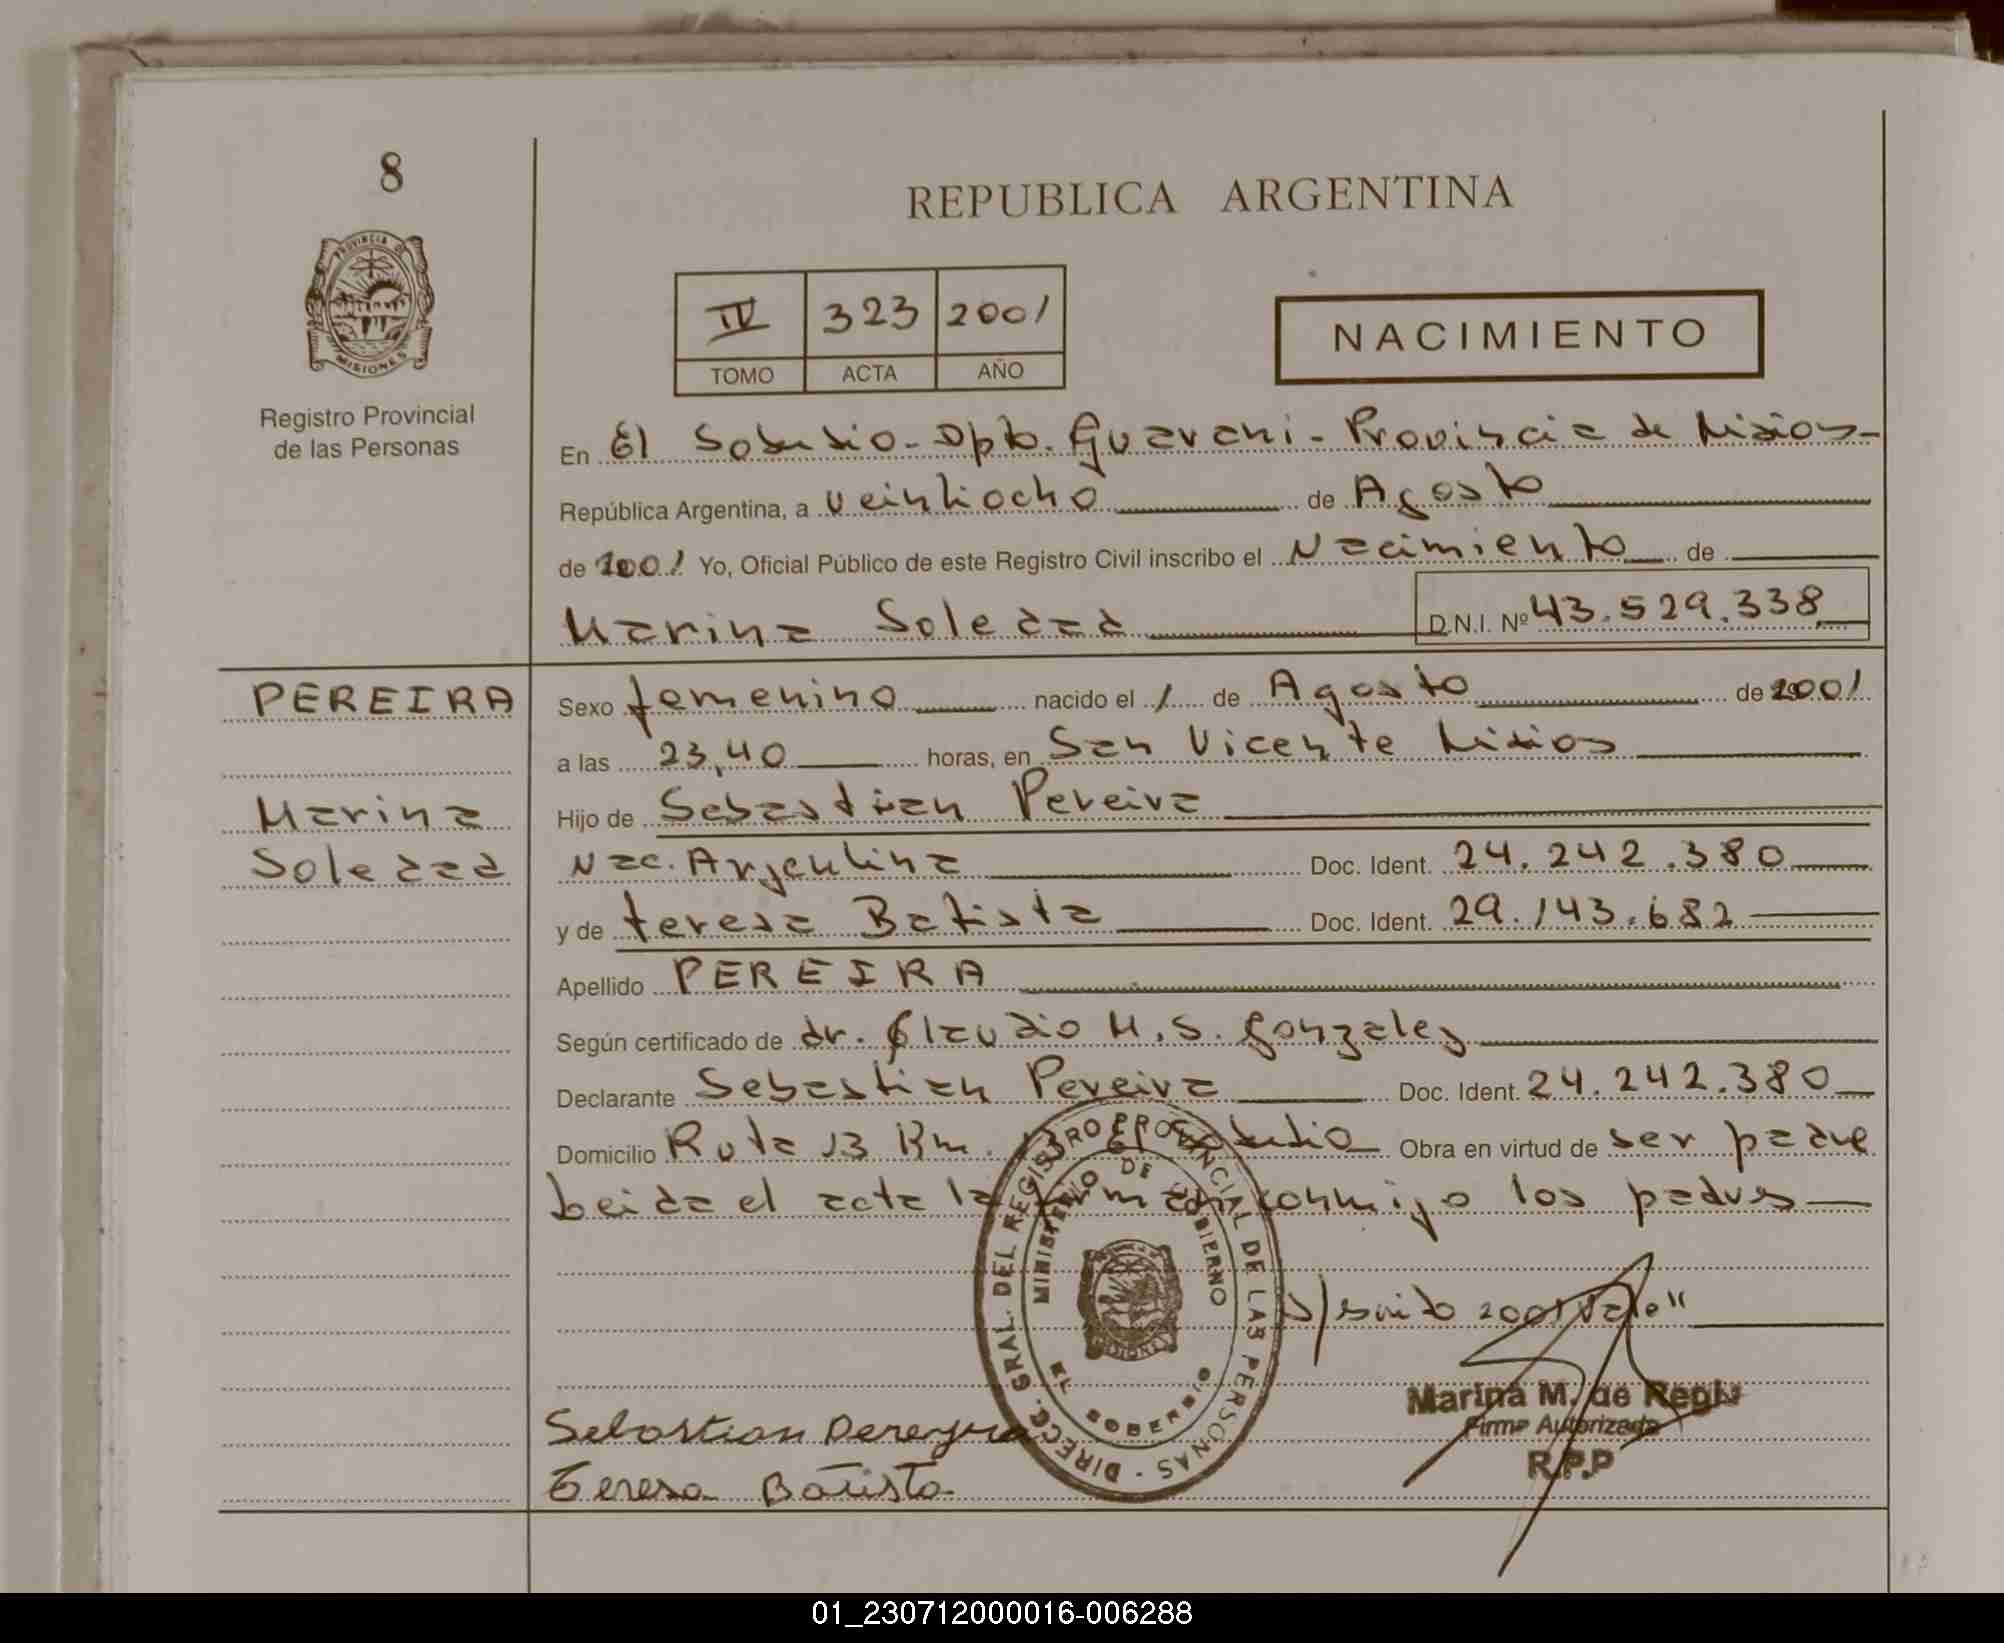 8
REPUBLICA ARGENTINA
PROVINCIA DE
MISIONES
Registro Provincial
de las Personas
IV 323 2001
TOMO ACTA AÑO
NACIMIENTO
En El Soberbio - Dpto. Guarani - Provincia de Misiones
República Argentina, a veintiocho de Agosto
de 2001 Yo, Oficial Público de este Registro Civil inscribo el Nacimiento de
Marina Soledad D.N.I. Nº 43.529.338
PEREIRA
Marina
Soledad
Sexo femenino nacido el 1 de Agosto de 2001
a las 23,40 horas, en San Vicente Misiones
Hijo de Sebastian Pereira
Nac. Argentina Doc. Ident. 24.242.380
y de teresa Batista Doc. Ident. 29.143.682
Apellido PEREIRA
Según certificado de dr. Claudio M. S. Gonzalez
Declarante Sebastian Pereira Doc. Ident. 24.242.380
Domicilio Ruta 13 Km. El Soberbio Obra en virtud de ser padre
Leida el acta la firman conmigo los padres
s/ 2001 Vale"
DIRECC. GRAL. DEL REGISTRO PROVINCIAL DE LAS PERSONAS
MINISTERIO DE GOBIERNO
EL SOBERBIO
Sebastian Pereyra
Teresa Batista
Marina M. de Regis
Firma Autorizada
R.P.P
01_230712000016-006288